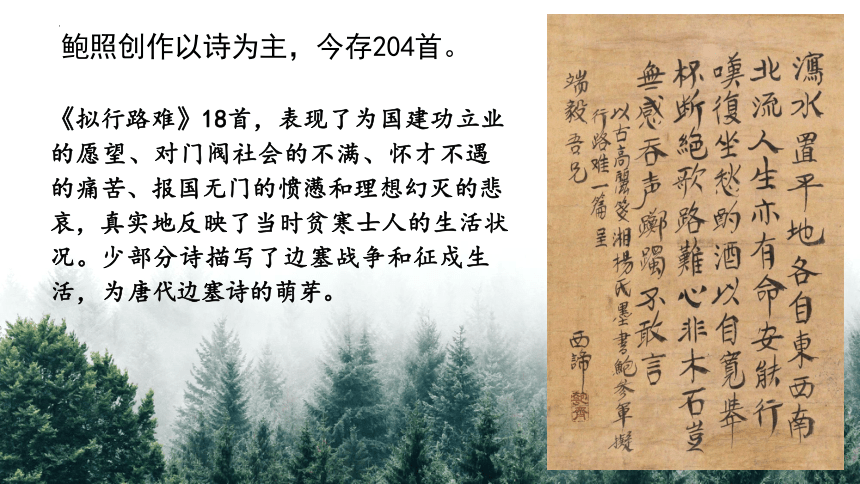 鲍照创作以诗为主，今存204首。
《拟行路难》18首，表现了为国建功立业
的愿望、对门阀社会的不满、怀才不遇
的痛苦、报国无门的愤懑和理想幻灭的悲
哀，真实地反映了当时贫寒士人的生活状
况。少部分诗描写了边塞战争和征戍生
活，为唐代边塞诗的萌芽。
瀉水置平地各自東西南
北流人生亦有命安能行
嘆復坐愁酌酒以自寬舉
杯斷絕歌路難心非木石豈
無感吞声躑躅不敢言
以古高麗笺湘楊氏墨書鮑參軍擬
行路难一篇呈
端毅吾兄
西諦